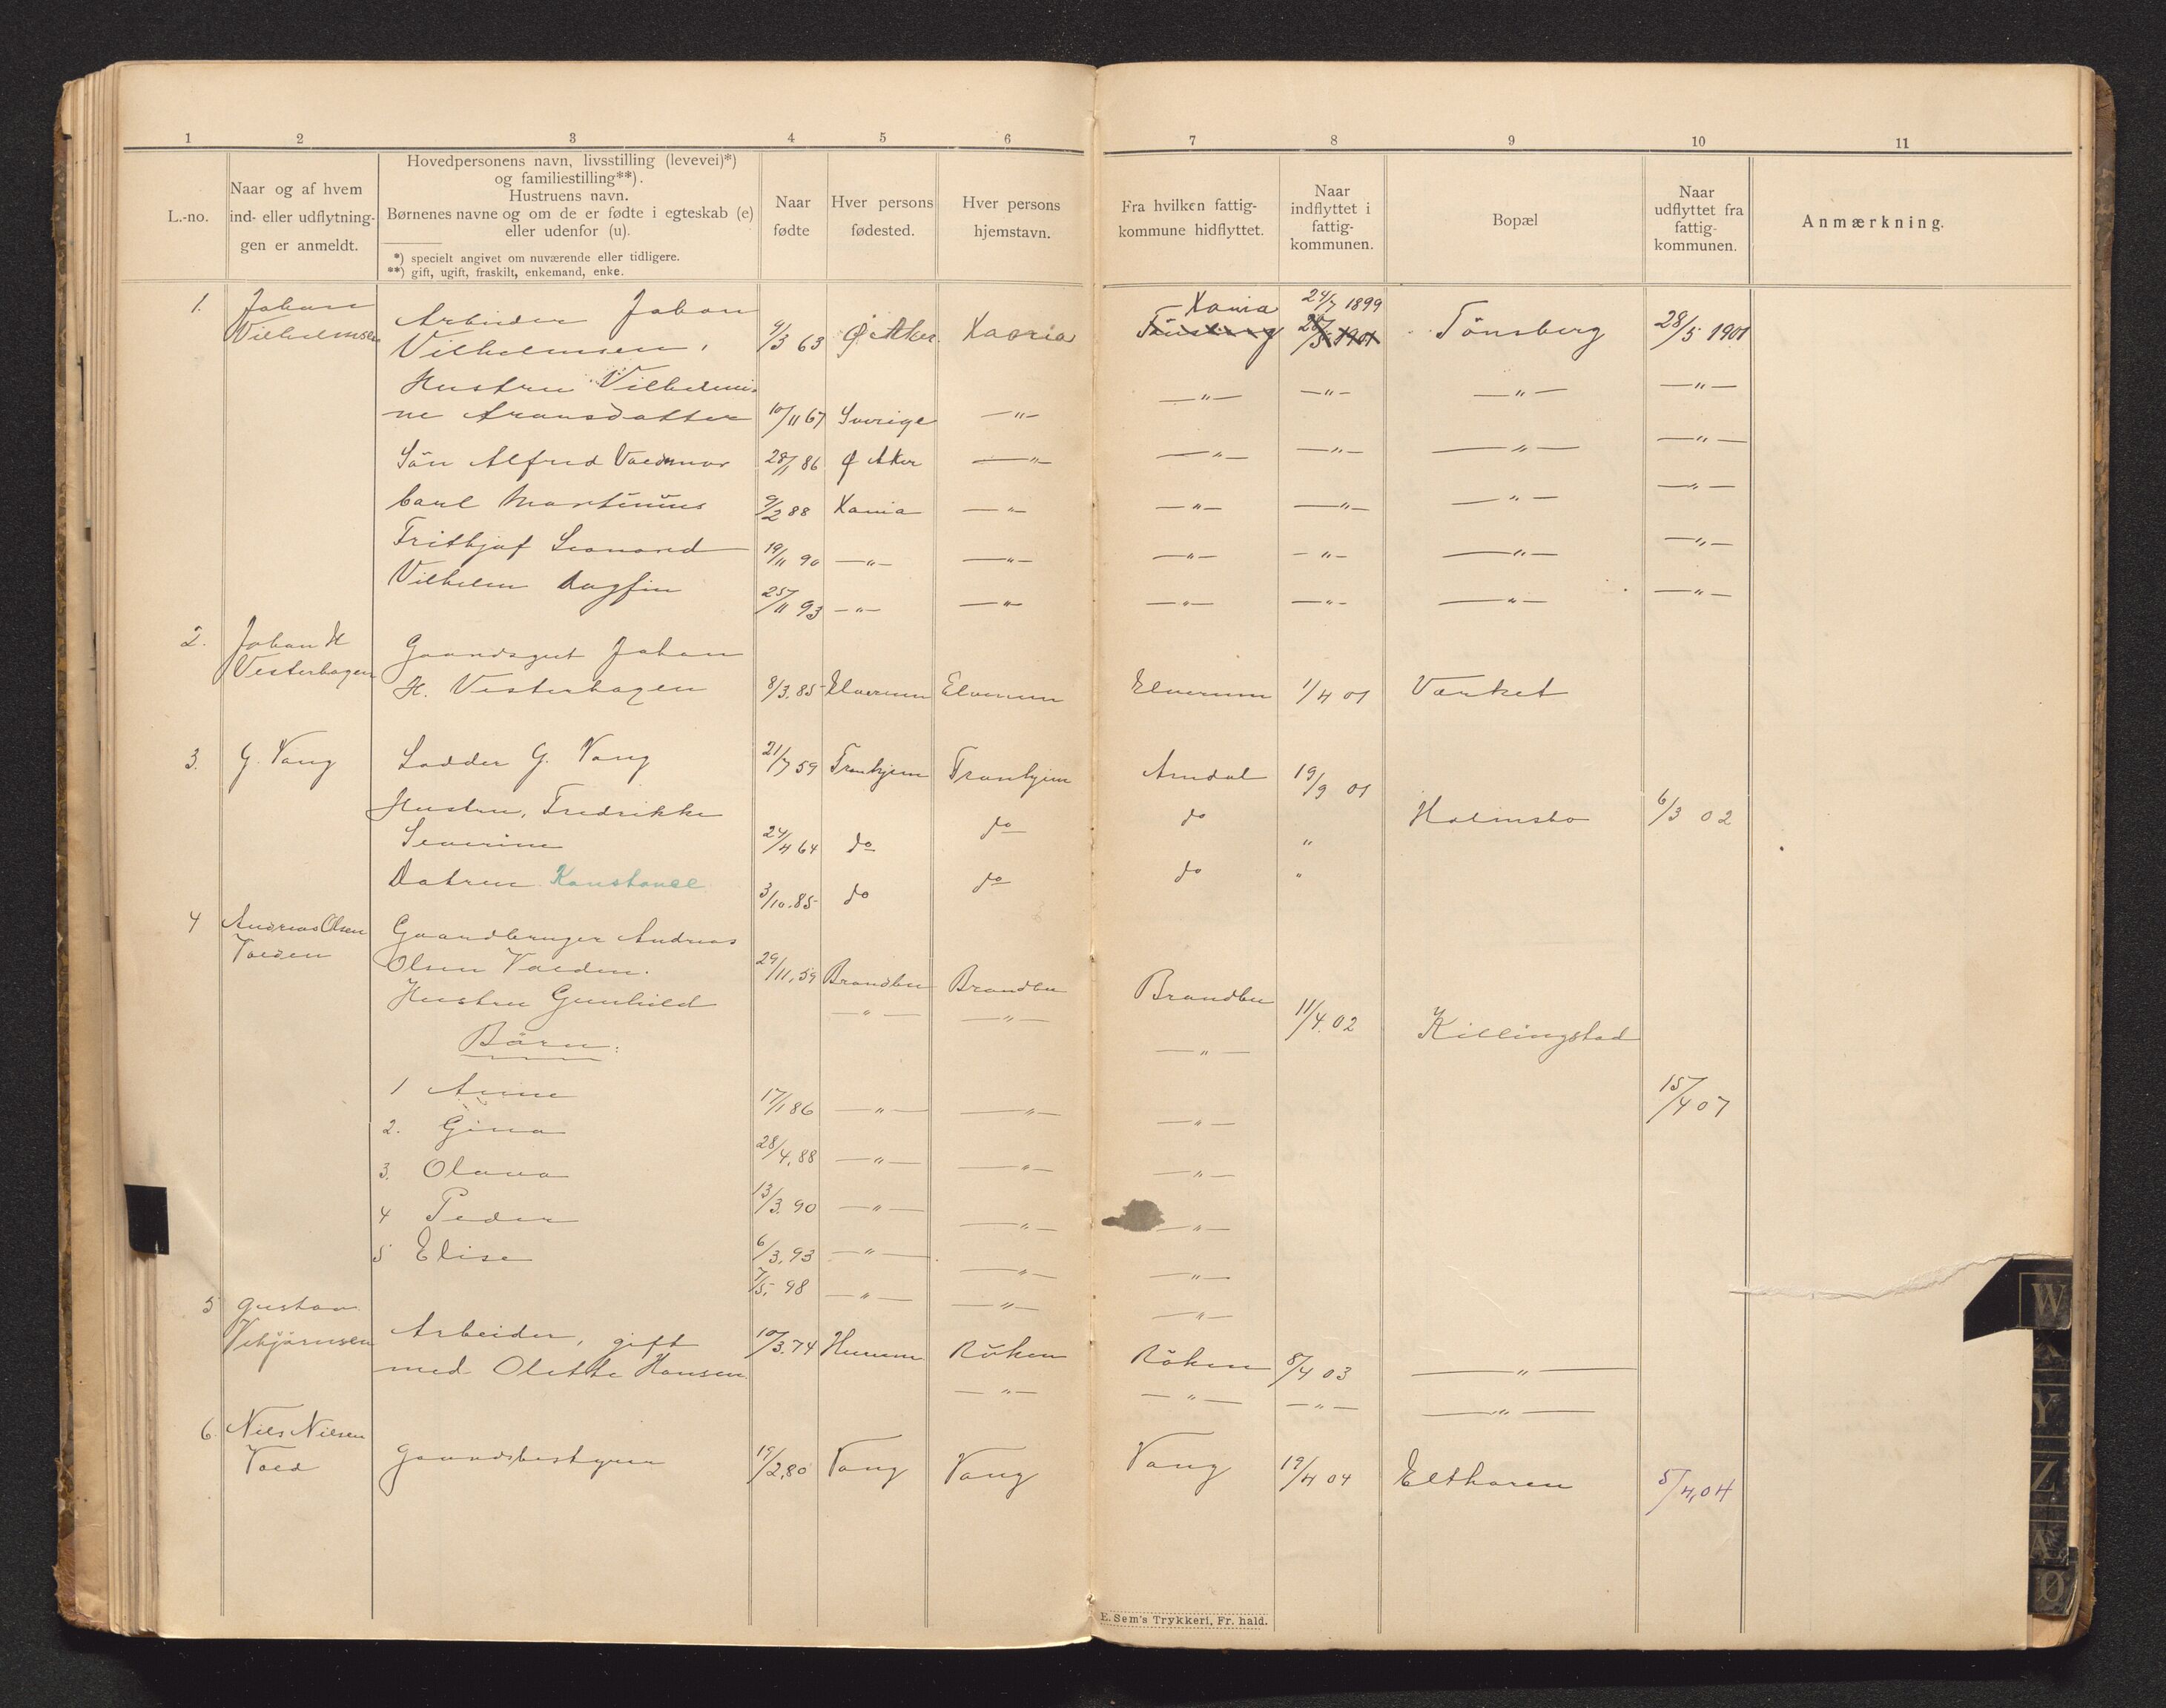 1 2 3 4 5 6 7 8 9 10 11
L.-no.
Naar og af hvem
ind- eller udflytnin-
gen er anmeldt.
Hovedpersonens navn, livsstilling (levevei)*)
og familiestilling**).
Hustruens navn.
Børnenes navne og om de er fødte i egteskab (e)
eller udenfor (u).
*) specielt angivet om nuværende eller tidligere.
**) gift, ugift, fraskilt, enkemand, enke.
Naar
fødte
Hver persons
fødested.
Hver persons
hjemstavn.
Fra hvilken fattig-
kommune hidflyttet.
Naar
indflyttet i
fattig-
kommunen.
Bopæl
Naar
udflyttet fra
fattig-
kommunen.
Anmærkning.
1. Johan Arbeider Johan Xania 24/7 1899
Vilhelmsen Vilhelmsen, 9/3 63 Ø Aker Xania Tönsberg 28/5 1901 Tönsberg 28/5 1901
Hustru Vilhelmi- —"— —"— —"— —"—
ne Aronsdatter 10/11 67 Sverige —"—
Sön Alfred Valdemar 28/1 86 Ø Aker —"— —"— —"— —"— —"—
Carl Martinius 9/2 88 Xania —"— —"— —"— —"— —"—
Frithjof Leonard 19/11 90 —"— —"— —"— —"— —"— —"—
Vilhelm Dagfin 25/11 93 —"— —"— —"— —"— —"— —"—
2. Johan H Gaardsgut Johan
Vesterhagen H. Vesterhagen 8/3.85 Elverum Elverum Elverum 1/4 01 Værket
3. G. Vang Lodder G. Vang 21/7 59 Tronhjem Tronhjem Arndal 19/9 01
Hustru, Fredrikke do do Holmsbo 6/3 02
Severine 24/4 64 do "
Datren Konstance 3/10.85 do do do "
4 Andreas Olsen Gaardbruger Andreas
Valden Olsen Valden. 29/11,59 Brandbu Brandbu Brandbu
Hustru Gunhild —"— —"— 11/4.02 Killingstad
Börn: —"—
1 Anne 17/1 86 —"— —"— —"— 15/4 07
2. Gina 28/4,88 —"— —"— —"—
3. Olava 13/3.90 —"— —"— —"—
4 Peder 6/3,93 —"— —"— —"—
5 Elise 7/5,98 —"— —"— —"—
5 Gustav
Vebjörnsen Arbeider, gift 10/3.74 Hurum Röken Röken 8/4 03 —"—
med Olette Hansen —"— —"— —"— —"—
6. Nils Nilsen
Vold Gaardsbestyrer 19/2,80 Vang Vang Vang 19/4 04 Elthoren 5/4,04
E. Sem's Trykkeri, Fr. hald.
W
Y
Z
Æ
Ø